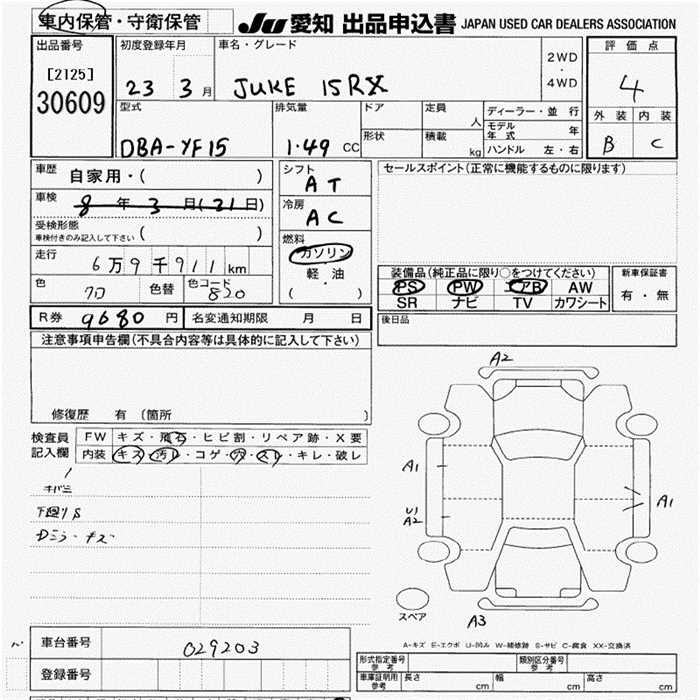 車内保管・守衛保管 JU愛知 出品申込書 JAPAN USED CAR DEALERS ASSOCIATION
出品番号 初度登録年月 車名・グレード 2WD・4WD 評価点
[2125]
30609 23 3月 JUKE 15RX 4
型式 排気量 ドア 定員 人 ディーラー・並行 外装 内装
DBA-YF15 1.49 CC 形状 積載 kg モデル年式 年 B C
ハンドル 左・右
車歴 自家用・( ) シフト AT セールスポイント(正常に機能するものに限ります)
車検 8年3月(31日) 冷房 AC
受検形態 ( )
車検付きのみ記入して下さい
走行 6万9千911km 燃料 ガソリン
軽・油
( )
色 クロ 色替 色コード 820
装備品(純正品に限り○をつけてください) 新車保証書
PS PW エアB AW 有・無
SR ナビ TV カワシート
R券 9680円 名変通知期限 月 日 後日品
注意事項申告欄(不具合内容等は具体的に記入して下さい)
修復歴 有(箇所 )
検査員記入欄 FW キズ・飛石・ヒビ割・リペア跡・X要
内装 キズ・汚レ・コゲ・穴・スレ・キレ・破レ
下廻りS
A2
A1
U1
A2
A1
A3
スペア
車台番号 029203
A-キズ E-エクボ U-凹み W-補修跡 S-サビ C-腐食 XX-交換済
登録番号
形式指定番号 参考 類別区分番号 参考
車庫証明用 参考 長さ cm 幅 cm 高さ cm